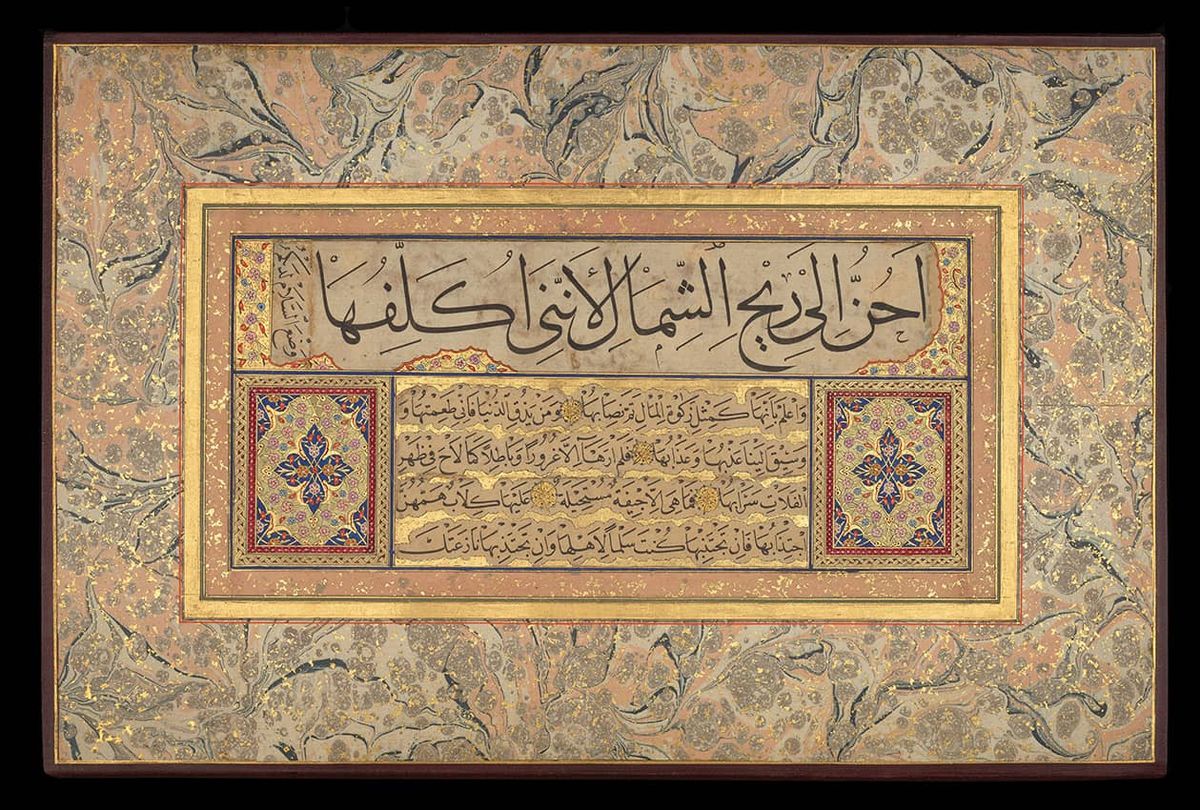 احن الى ريح الشمال لأننى اكلفها
واعلم انها كمثل زكوة المال تم نصابها ومن يذق الدنيا فانى طعمتها و
وسيق الينا عذبها وعذابها فلم ارها الا غرورا وباطلا كما لاح فى ظهر
الفلات سرابها فما هى الا جيفة مستحيلة عليها كلاب همهن
اجتذابها فان تجتنبها كنت سلما لاهلها وان تجتذبها نازعتك